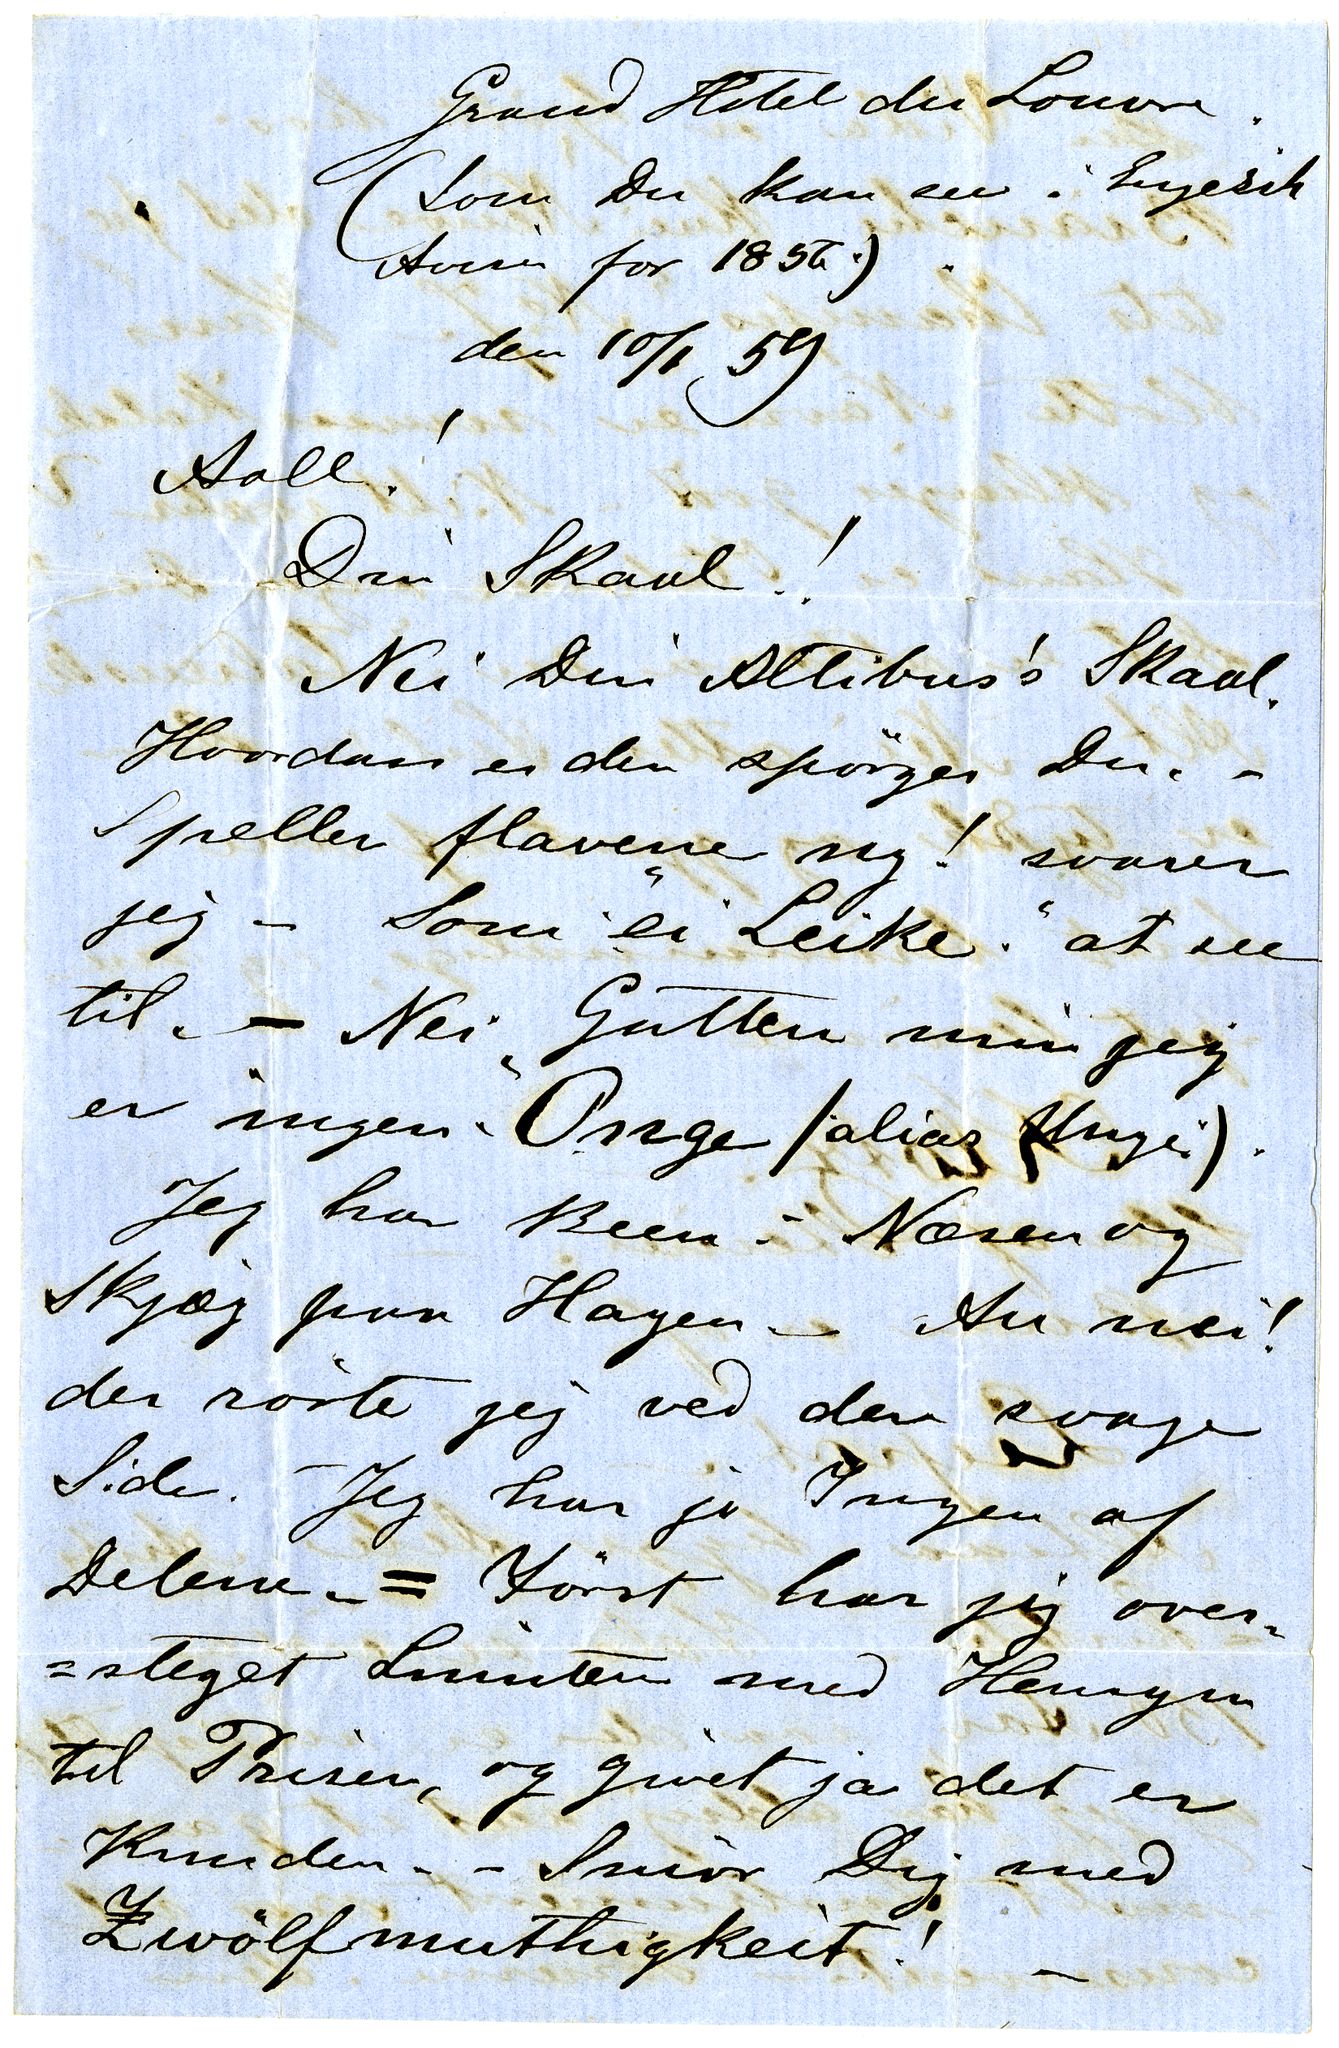 Grand Hotel du Louvre.
(Som Du kan see i Engelsk
Avisen for 1856.)
den 10/1 59
Aall!
Din Skaal!
Nei Din Altibus's Skaal.
Hvordan er den spörger Du. -
Speller flavene ny! svarer
jeg - Som "ei Leike." at see
til. - Nei "Gutten min jeg
er ingen "Onge (alias Unge).
Jeg har Been i Næsen og
Skjæg paa Hagen - Au nei!
der rörte jeg ved den svage
Side. - Jeg har jo Ingen af
Delene. = Först har jeg over-
=steget Limiten med Hensyn
til Prisen, og givet ja det er
Kunden. - Smör Dig med
Zwölfmuthigkeit! -